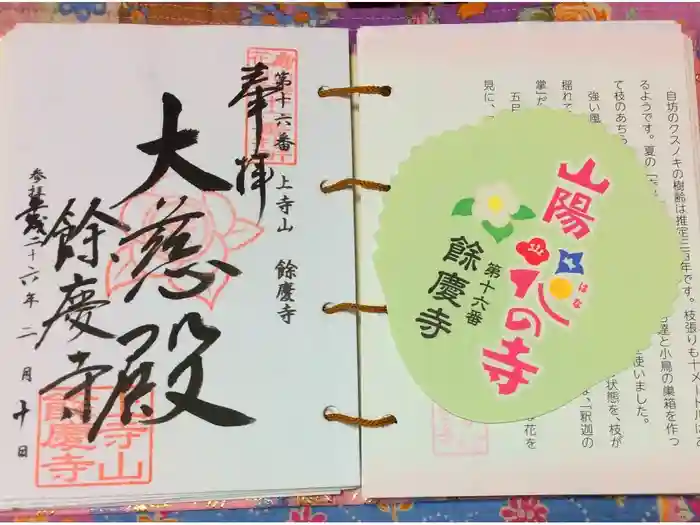 奉拝
第十六番
上寺山　餘慶寺
大慈殿
餘慶寺
参拝平成二十六年二月十日
上寺山
餘慶寺
自坊のクスノキの樹齢は推定三
年です。枝張りも十メート
るようです。夏の「
て枝のあちら
達と小鳥の巣箱を作っ
強い風
使いました。
揺れて
状態を、枝が
掌」だ
、「釈迦の
五
花を
見に、
山陽
花の寺
はな
第十六番
餘慶寺